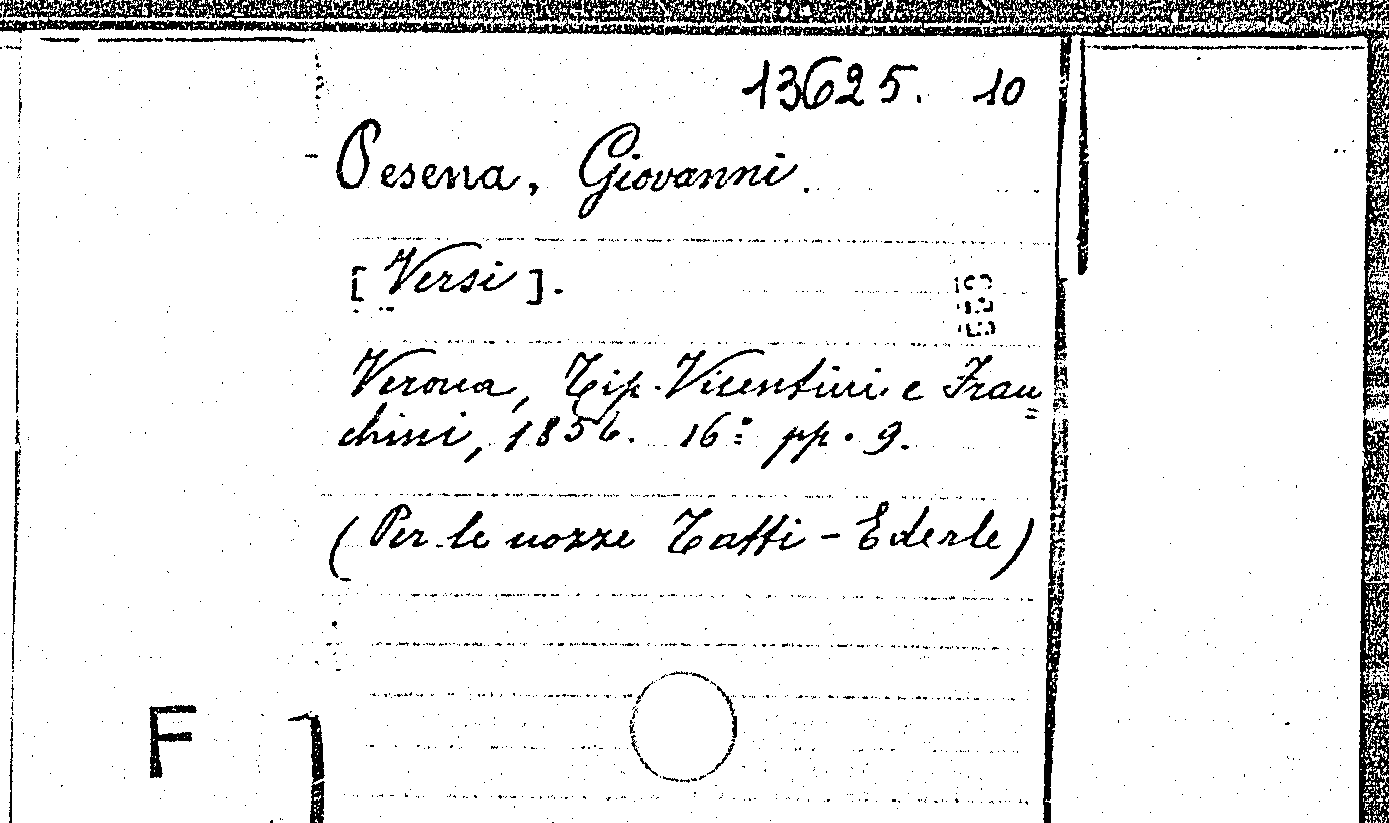 13625. 10
Pesena, Giovanni.
[Versi].
Verona, Tip. Vicentini e Fran=
chini, 1856. 16º pp. 9.
(Per le nozze Tatti - Ederle)
F